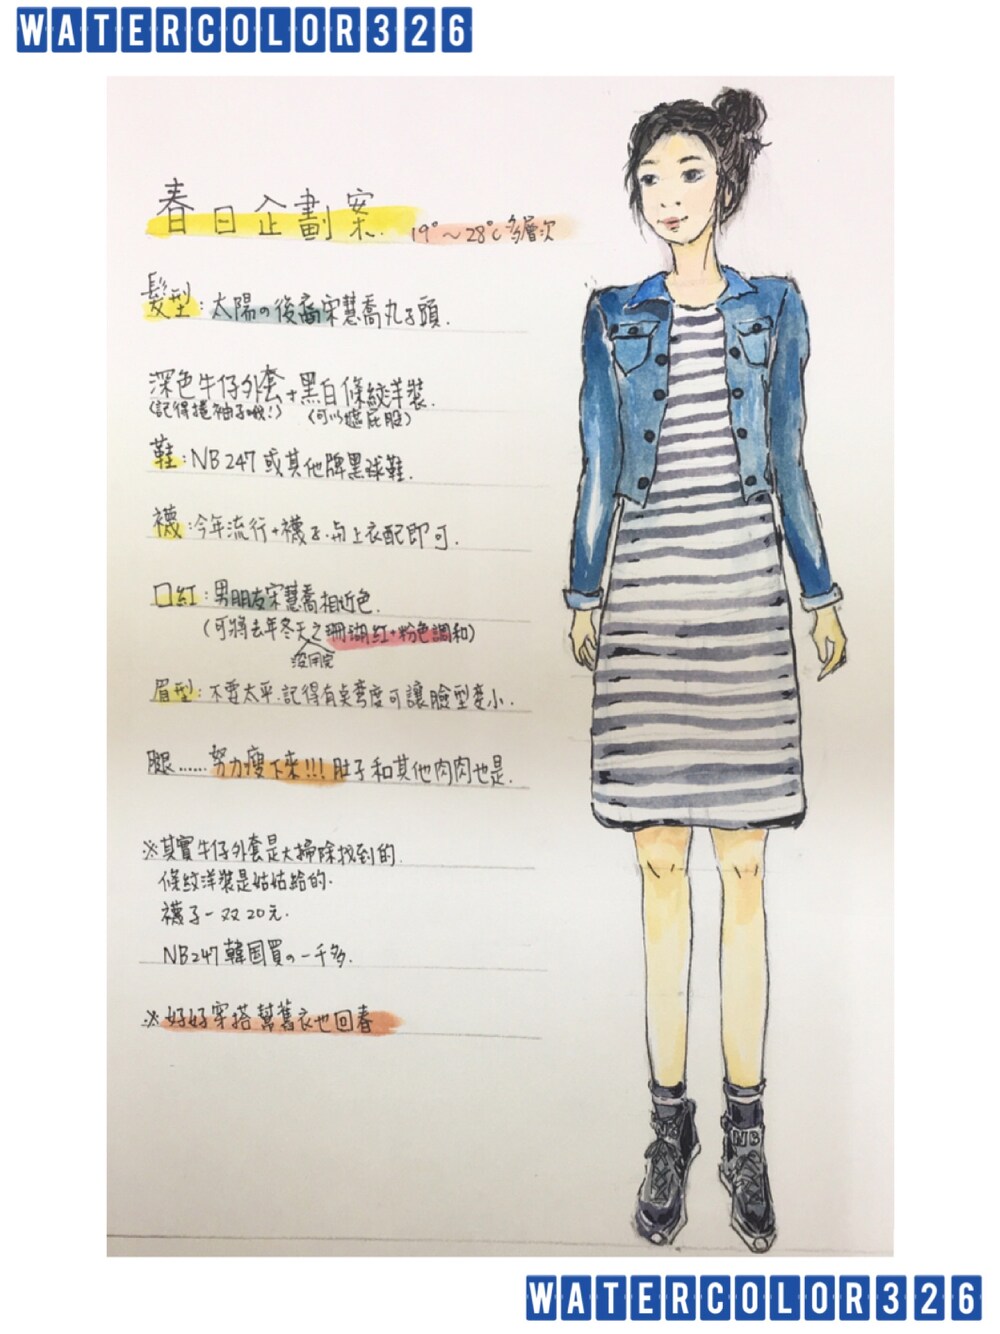 WATERCOLOR326
春日企劃案. 19°~28°C多層次
髮型:太陽の後裔宋慧喬丸子頭.
深色牛仔外套+黑白條紋洋裝.
(記得捲袖子哦!) (可以遮屁股)
鞋:NB247或其他牌黑球鞋.
襪:今年流行+襪子.与上衣配即可.
口紅:男朋友宋慧喬相近色.
(可將去年冬天之珊瑚紅+粉色調和)
沒用完
眉型:不要太平.記得有点弯度可讓臉型变小.
腿……努力瘦下來!!!肚子和其他肉肉也是.
※其實牛仔外套是大掃除找到的.
條紋洋裝是姑姑給的.
襪子一双20元.
NB247韓国買の一千多.
※好好穿搭幫舊衣也回春
NB
WATERCOLOR326